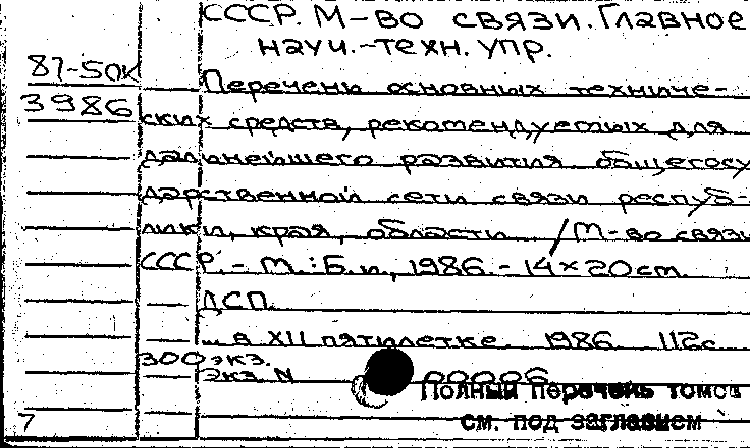 СССР. М-во связи. Главное
науч.-техн. упр.
87-50к
3986
Перечень основных техниче-
ских средств, рекомендуемых для
дальнейшего развития общегосу
дарственной сети связи респуб-
лики, края, области... / М-во связи
СССР. - М.: Б.и., 1986. - 14×20см.
ДСП.
... в XII пятилетке. 1986. 112с.
300 экз.
Экз. N 00006
Полный перечень томов
см. под заглавием
7